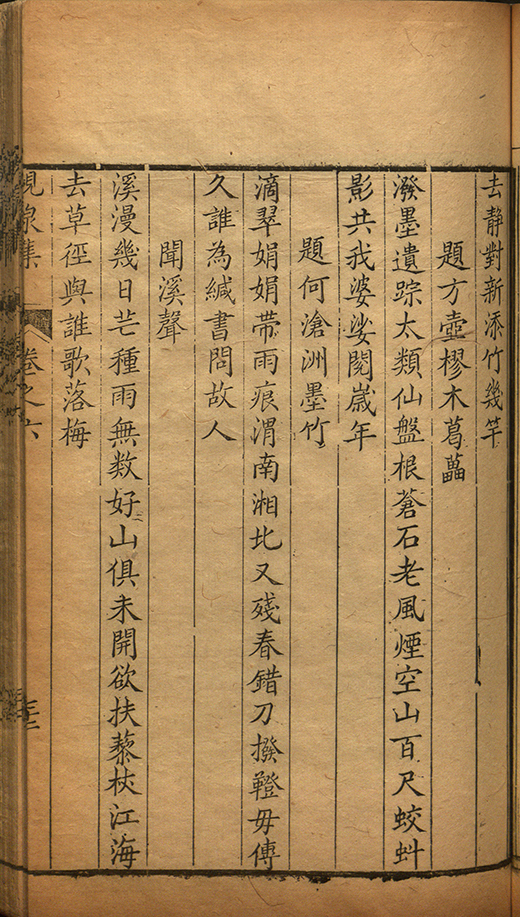 去靜對新添竹幾竿
題方壺樛木葛藟
潑墨遺踪太類仙盤根蒼石老風煙空山百尺蛟虯
影共我婆娑閱歲年
題何滄洲墨竹
滴翠娟娟帶雨痕渭南湘北又殘春錯刀撥鐙毋傳
久誰為緘書問故人
聞溪聲
溪漫幾日芒種雨無数好山俱未開欲扶藜杖江海
去草徑與誰歌落梅
泉集
卷之六